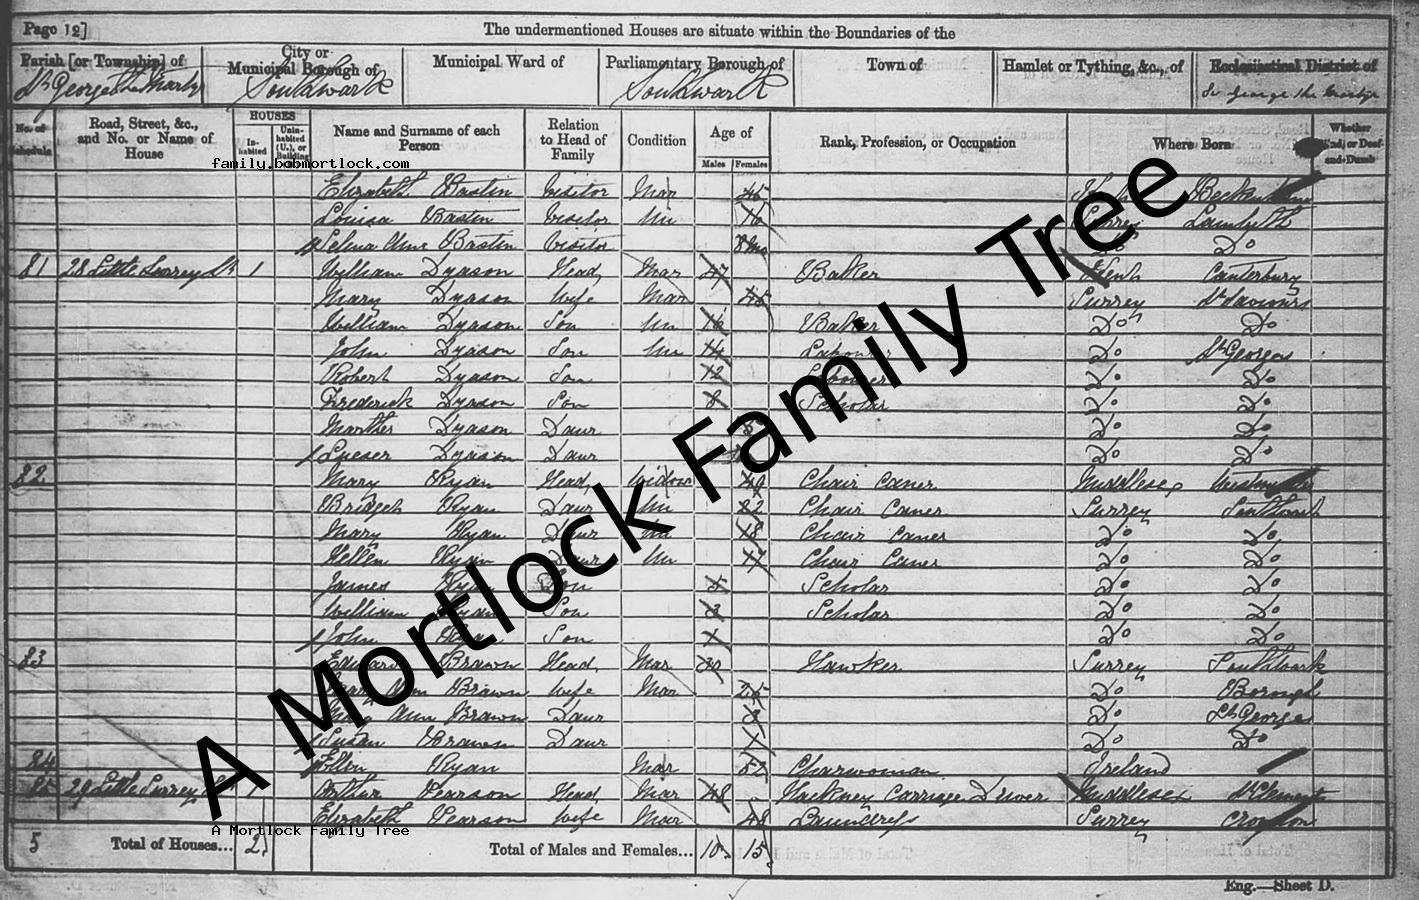 Page 12]
The undermentioned Houses are situate within the Boundaries of the
Parish [or Township] of
City or Municipal Borough of
Municipal Ward of
Parliamentary Borough of
Town of
Hamlet or Tything, &c., of
Ecclesiastical District of
St George the Martyr
Southwark
Southwark
St George the Martyr
No. of Schedule
Road, Street, &c., and No. or Name of House
HOUSES
Inhabited
Uninhabited (U.), or Building
Name and Surname of each Person
Relation to Head of Family
Condition
Age of
Males
Females
Rank, Profession, or Occupation
Where Born
Whether Blind, or Deaf-and-Dumb
family.bobmortlock.com
Elizabeth Bastin Visitor Mar 45 Beckenham
Louisa Bastin Visitor Un 16 Surrey Lambeth
Selena Ann Bastin Visitor 8 Mo Do Do
81 28 Little Surrey St 1 William Dyason Head Mar 47 Baker Kent Canterbury
Mary Dyason Wife Mar 45 Surrey St Saviours
William Dyason Son Un 16 Baker Do Do
John Dyason Son Un 14 Labourer Do St Georges
Robert Dyason Son 12 Labourer Do Do
Frederick Dyason Son 8 Scholar Do Do
Marther Dyason Daur 5 Do Do
Dyason Daur Do Do
82 Mary Ryan Head Widow 49 Chair Caner Middlesex Westminster
Bridget Ryan Daur Un 22 Chair Caner Surrey Southwark
Mary Ryan Daur Un 18 Chair Caner Do Do
Hellen Ryan Daur Un 17 Chair Caner Do Do
James Ryan Son Scholar Do Do
William Ryan Son Scholar Do Do
John Ryan Son Do Do
83 Edward Brawn Head Mar 30 Hawker Surrey Southwark
Ann Brawn Wife Mar 25 Do Borough
Ann Brawn Daur Do St Georges
Susan Brawn Daur Do Do
84 Ellen Ryan Mar 52 Charwoman Ireland
85 29 Little Surrey St 1 Arthur Pearson Head Mar 48 Hackney Carriage Driver Middlesex St Clements
Elizabeth Pearson Wife Mar 48 Laundress Surrey Croydon
A Mortlock Family Tree
A Mortlock Family Tree
5 Total of Houses... 2 Total of Males and Females... 10 15
Eng.—Sheet D.